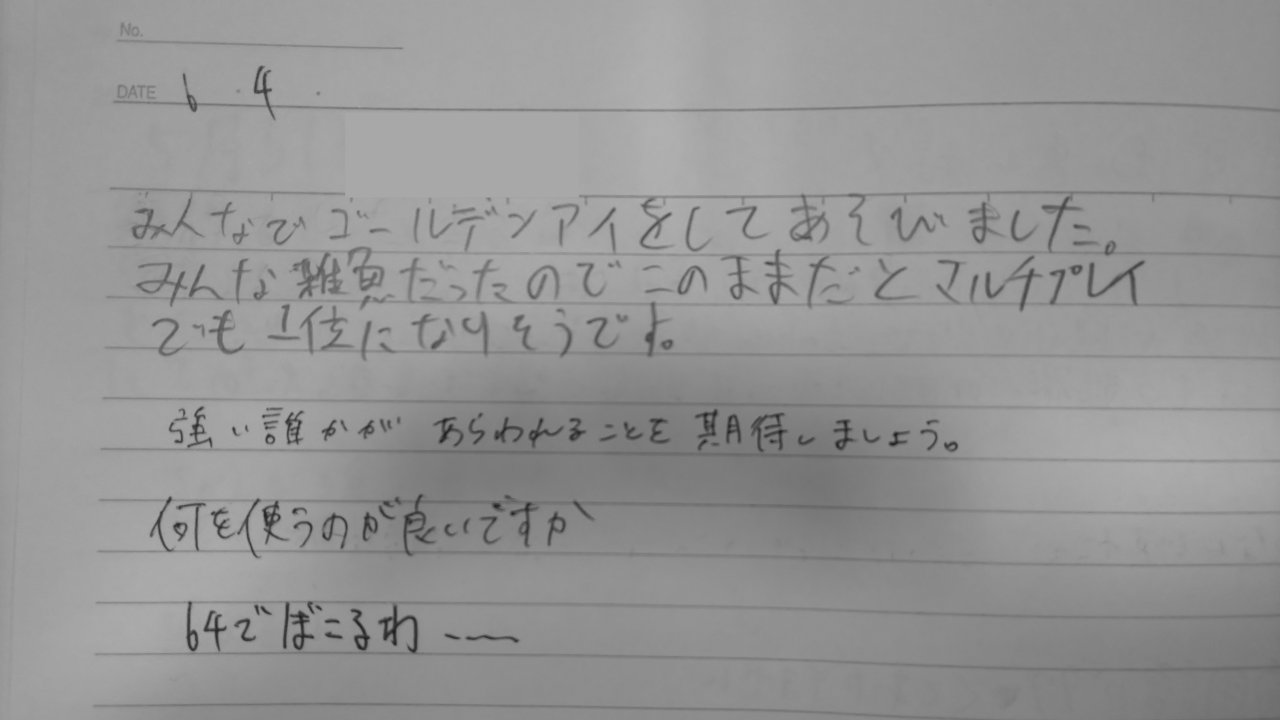 No.
DATE 6 . 4 .
みんなでゴールデンアイをしてあそびました。
みんな雑魚だったのでこのままだとマルチプレイ
でも1位になりそうですよ。
強い誰かがあらわれることを期待しましょう。
何を使うのが良いですか
64でぼこるわ ——